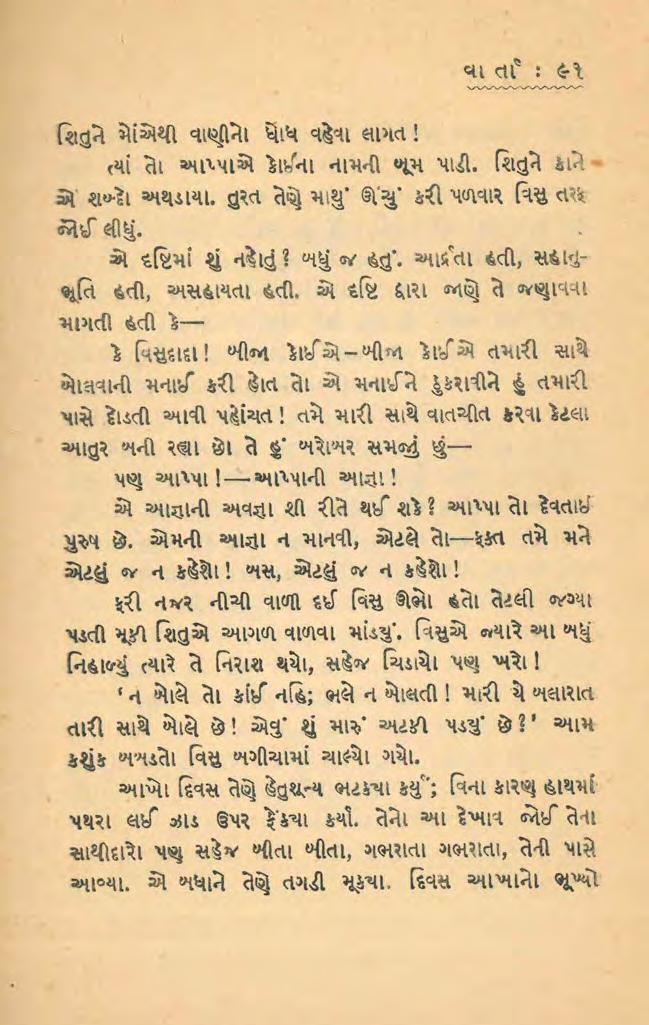 વાર્તા : ૯૧
શિતુને મોંએથી વાણીનો ધોધ વહેવા લાગત !
ત્યાં તો આપ્પાએ કોઈના નામની બૂમ પાડી. શિતુને કાને
એ શબ્દો અથડાયા. તુરત તેણે માથું ઊંચું કરી પળવાર વિસુ તરફ
જોઈ લીધું.
એ દૃષ્ટિમાં શું નહોતું ? બધું જ હતું. આર્દ્રતા હતી, સહાનુ-
ભૂતિ હતી, અસહાયતા હતી. એ દૃષ્ટિ દ્વારા જાણે તે જણાવવા
માગતી હતી કે—
કે વિસુદાદા ! બીજા કોઈએ–બીજા કોઈએ તમારી સાથે
બોલવાની મનાઈ કરી હોત તો એ મનાઈને ઠુકરાવીને હું તમારી
પાસે દોડતી આવી પહોંચત ! તમે મારી સાથે વાતચીત કરવા કેટલા
આતુર બની રહ્યા છો તે હું બરોબર સમજું છું—
પણ આપ્પા !—આપ્પાની આજ્ઞા !
એ આજ્ઞાની અવજ્ઞા શી રીતે થઈ શકે ? આપ્પા તો દેવતાઈ
પુરુષ છે. એમની આજ્ઞા ન માનવી, એટલે તો—ફક્ત તમે મને
એટલું જ ન કહેશો ! બસ, એટલું જ ન કહેશો !
ફરી નજર નીચી વાળી દઈ વિસુ ઊભો હતો તેટલી જગ્યા
પડતી મૂકી શિતુએ આગળ વાળવા માંડ્યું. વિસુએ જ્યારે આ બધું
નિહાળ્યું ત્યારે તે નિરાશ થયો, સહેજ ચિડાયો પણ ખરો !
‘ ન બોલે તો કાંઈ નહિ; ભલે ન બોલતી ! મારી યે બલારાત
તારી સાથે બોલે છે ! એવું શું મારું અટકી પડ્યું છે ?’ આમ
કશુંક બબડતો વિસુ બગીચામાં ચાલ્યો ગયો.
આખો દિવસ તેણે હેતુશૂન્ય ભટક્યા કર્યું; વિના કારણ હાથમાં
પથરા લઈ ઝાડ ઉપર ફેંક્યા કર્યા. તેનો આ દેખાવ જોઈ તેના
સાથીદારો પણ સહેજ બીતા બીતા, ગભરાતા ગભરાતા, તેની પાસે
આવ્યા. એ બધાને તેણે તગડી મૂક્યા. દિવસ આખાનો ભૂખ્યો